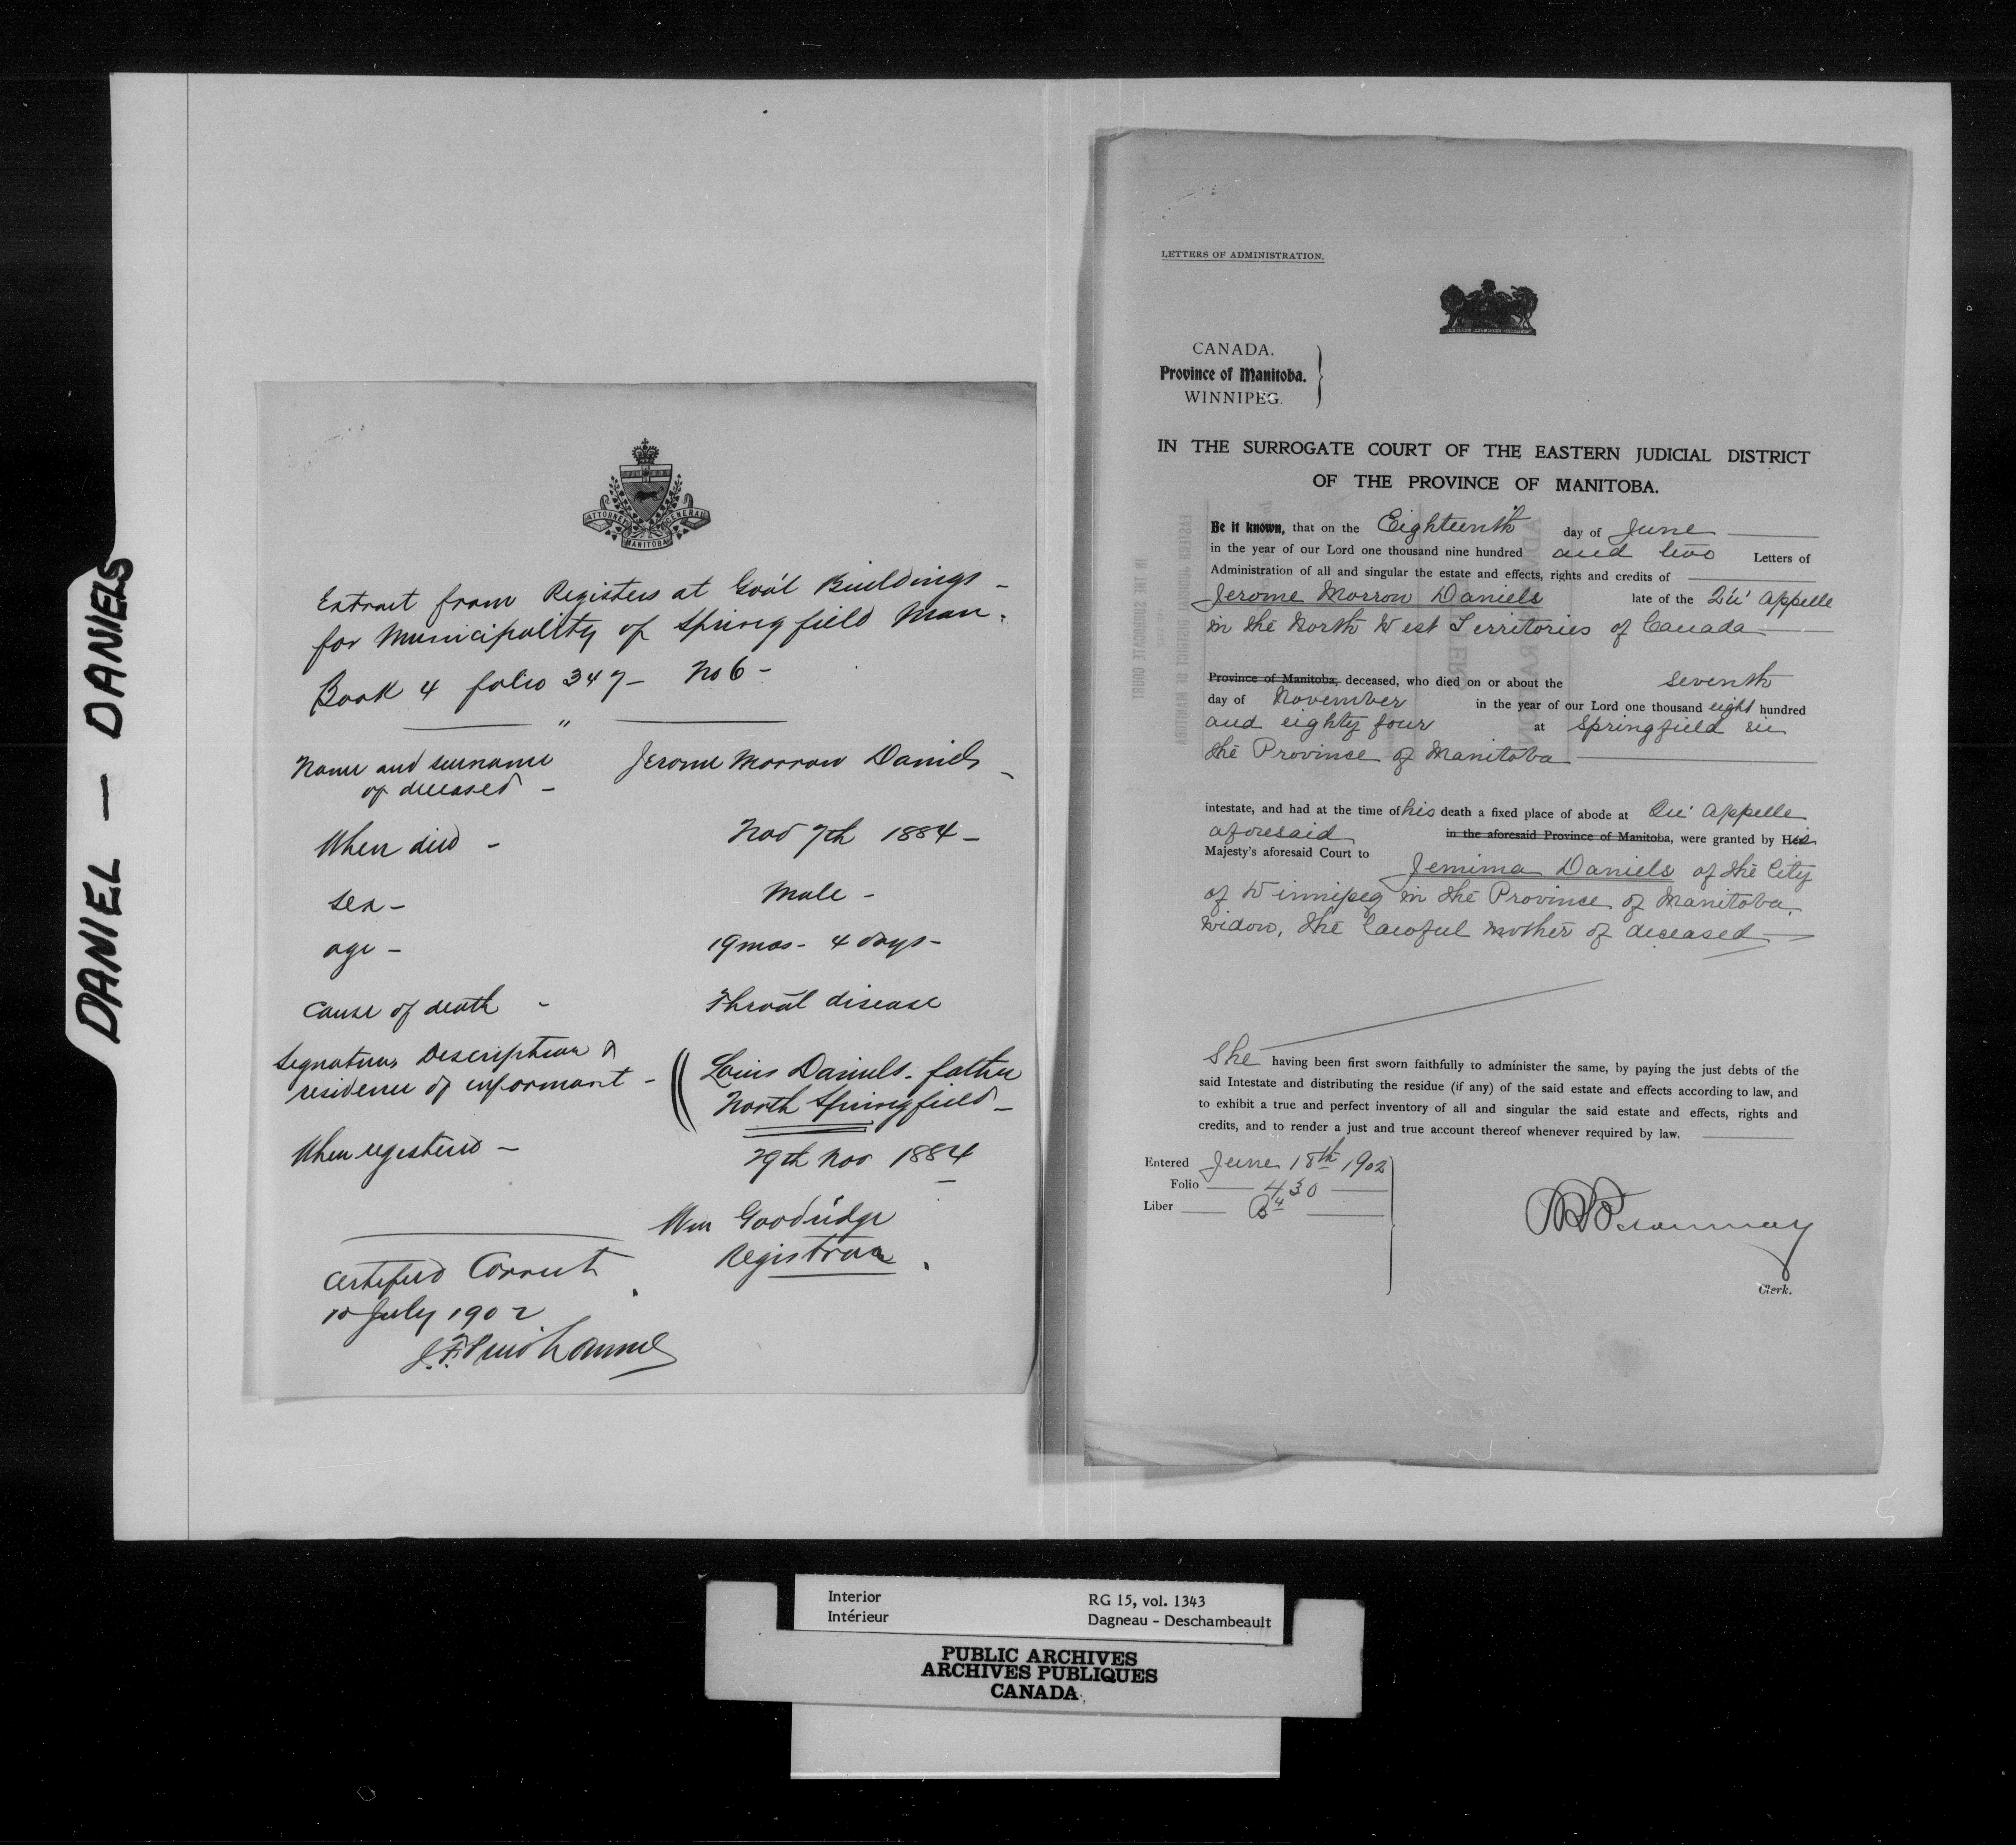 DANIEL — DANIELS
ATTORNEY GENERAL
MANITOBA
Extract from Registers at Gov't Buildings -
for Municipality of Springfield Man.
Book 4 folio 347 - No 6 -
"
Name and surname Jerome Morrow Daniels -
of deceased -
When died - Nov 7th 1884 -
Sex - Male -
age - 19 mos - 4 days -
Cause of death - Throat disease
Signature, Description & Louis Daniels - father
residence of informant - North Springfield -
When registered - 29th Nov 1884
Wm Goodridge
Registrar.
Certified Correct.
10 July 1902
LETTERS OF ADMINISTRATION.
CANADA.
Province of Manitoba.
WINNIPEG.
IN THE SURROGATE COURT OF THE EASTERN JUDICIAL DISTRICT
OF THE PROVINCE OF MANITOBA.
Be it known, that on the Eighteenth day of June
in the year of our Lord one thousand nine hundred and two Letters of
Administration of all and singular the estate and effects, rights and credits of
Jerome Morrow Daniels late of the Qu' Appelle
in the North West Territories of Canada
Province of Manitoba, deceased, who died on or about the seventh
day of November in the year of our Lord one thousand eight hundred
and eighty four at Springfield in
the Province of Manitoba
intestate, and had at the time of his death a fixed place of abode at Qu' Appelle
aforesaid in the aforesaid Province of Manitoba, were granted by His
Majesty's aforesaid Court to Jemima Daniels of the City
of Winnipeg in the Province of Manitoba,
Widow, the lawful mother of deceased
She having been first sworn faithfully to administer the same, by paying the just debts of the
said Intestate and distributing the residue (if any) of the said estate and effects according to law, and
to exhibit a true and perfect inventory of all and singular the said estate and effects, rights and
credits, and to render a just and true account thereof whenever required by law.
Entered June 18th 1902
Folio 430
Liber B4
Clerk.
Interior RG 15, vol. 1343
Intérieur Dagneau - Deschambeault
PUBLIC ARCHIVES
ARCHIVES PUBLIQUES
CANADA